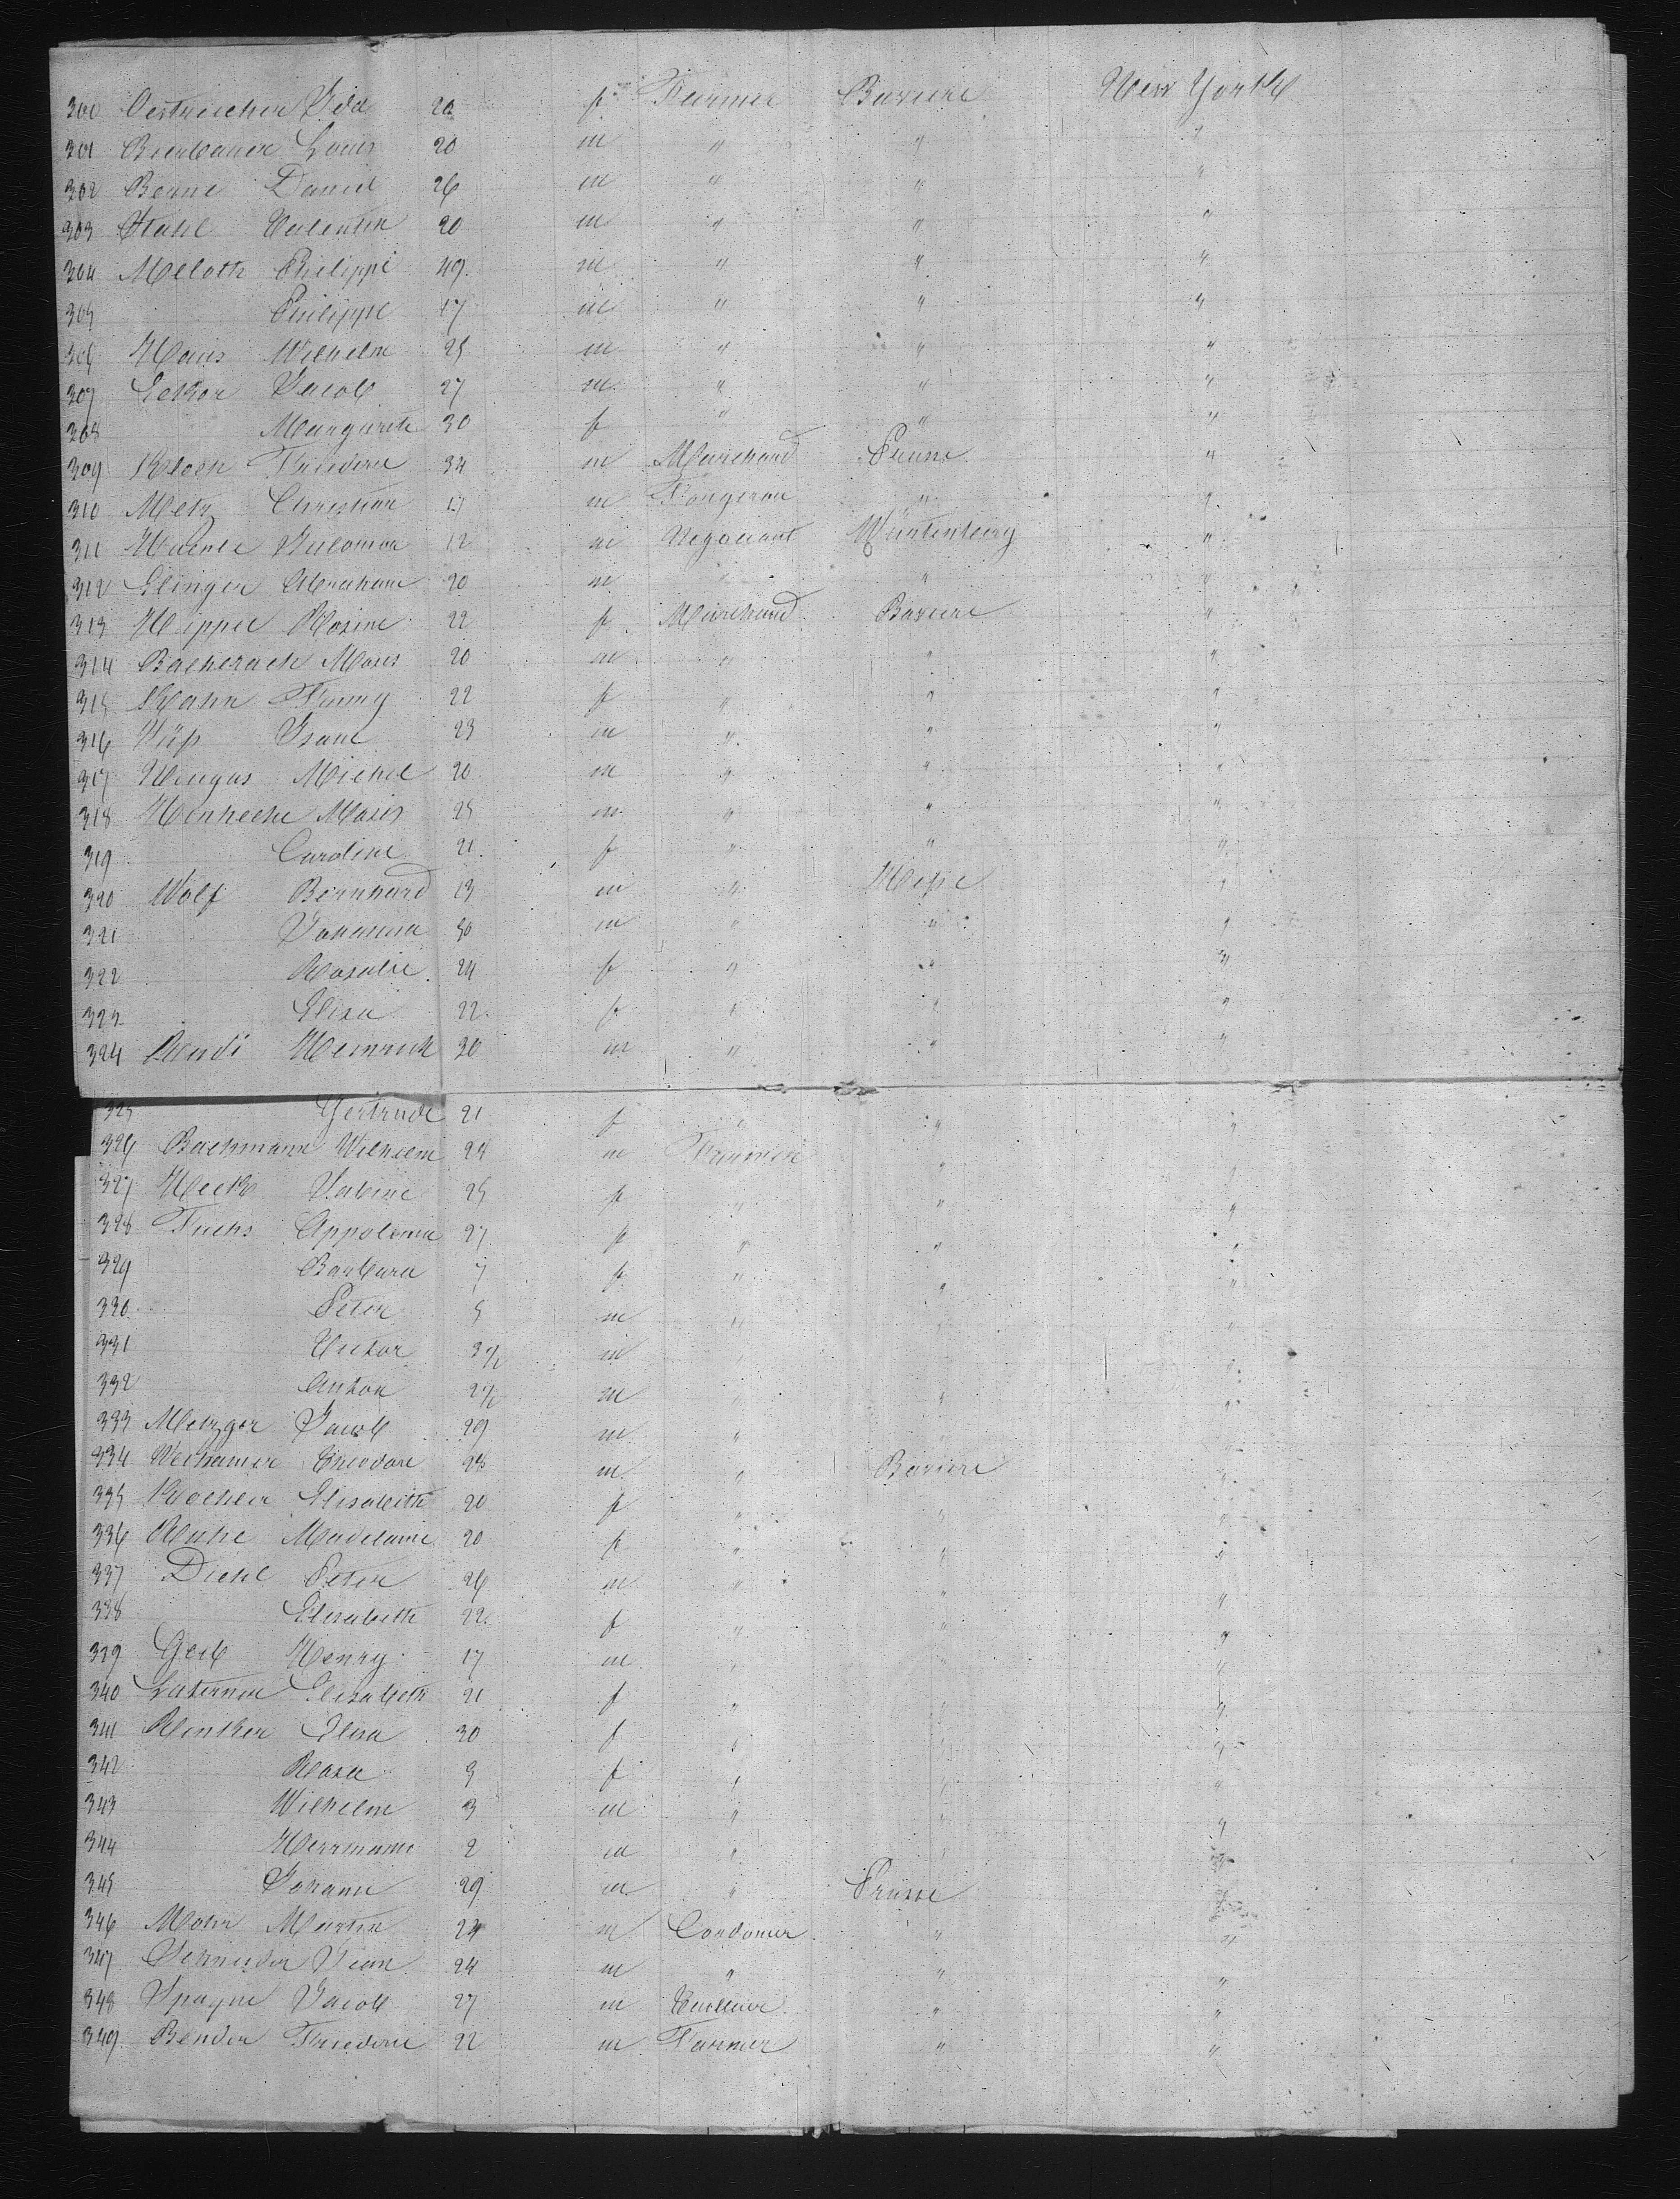 300 Oestreicher Ida 20 f Farmer Baviere New York
301 Bierbauer Louis 20 m " " "
302 Beune Daniel 26 m " " "
303 Stahl Valentin 20 m " " "
304 Meloth Philippe 49 m " " "
305 Philippe 17 m " " "
306 Haus Wilhelm 25 m " " "
307 Eckor Jacob 27 m " " "
308 Margareth 30 f " " "
309 Kloch Friederic 34 m Marchand Prusse "
310 Metz Christian 17 m Forgeron " "
311 Salomon 12 m Negociant Würtemberg "
312 Elinger Abraham 20 m " " "
313 Hippel Rosine 22 f Marchand Baviere "
314 Bacherach Moses 20 m " " "
315 Kahn Fanny 22 f " " "
316 Isaac 23 m " " "
317 Michel 20 m " " "
318 Moses 25 m " " "
319 Caroline 21 f " " "
320 Wolf Bernhard 13 m " Hesse "
321 Johanna 30 m " " "
322 Rosalie 24 f " " "
323 Elisa 22 f " " "
324 Heinrich 30 m " " "
325 Gertrude 21 f " " "
326 Bachmann Wilhelm 28 m Farmer " "
327 Heck Sabine 25 f " " "
328 Fuchs Appolonia 27 f " " "
329 Barbara 7 f " " "
330 Peter 5 m " " "
331 Victor 3½ m " " "
332 Anton 2½ m " " "
333 Metzger Jacob 29 m " " "
334 Theodore 28 m " Baviere "
335 Koehler Elisabeth 20 f " " "
336 Madelaine 20 f " " "
337 Diehl Peter 26 m " " "
338 Elisabeth 22 f " " "
339 Geib Henry 17 m " " "
340 Laterner Elisabeth 21 f " " "
341 Rinker Elisa 30 f " " "
342 Rosa 9 f " " "
343 Wilhelm 3 m " " "
344 Herrmann 2 m " " "
345 Johann 29 m " Prusse "
346 Mohr Martin 24 m Cordonier " "
347 Schneider Jean 24 m " " "
348 Jacob 27 m " "
349 Bender Friederic 22 m Farmer " "